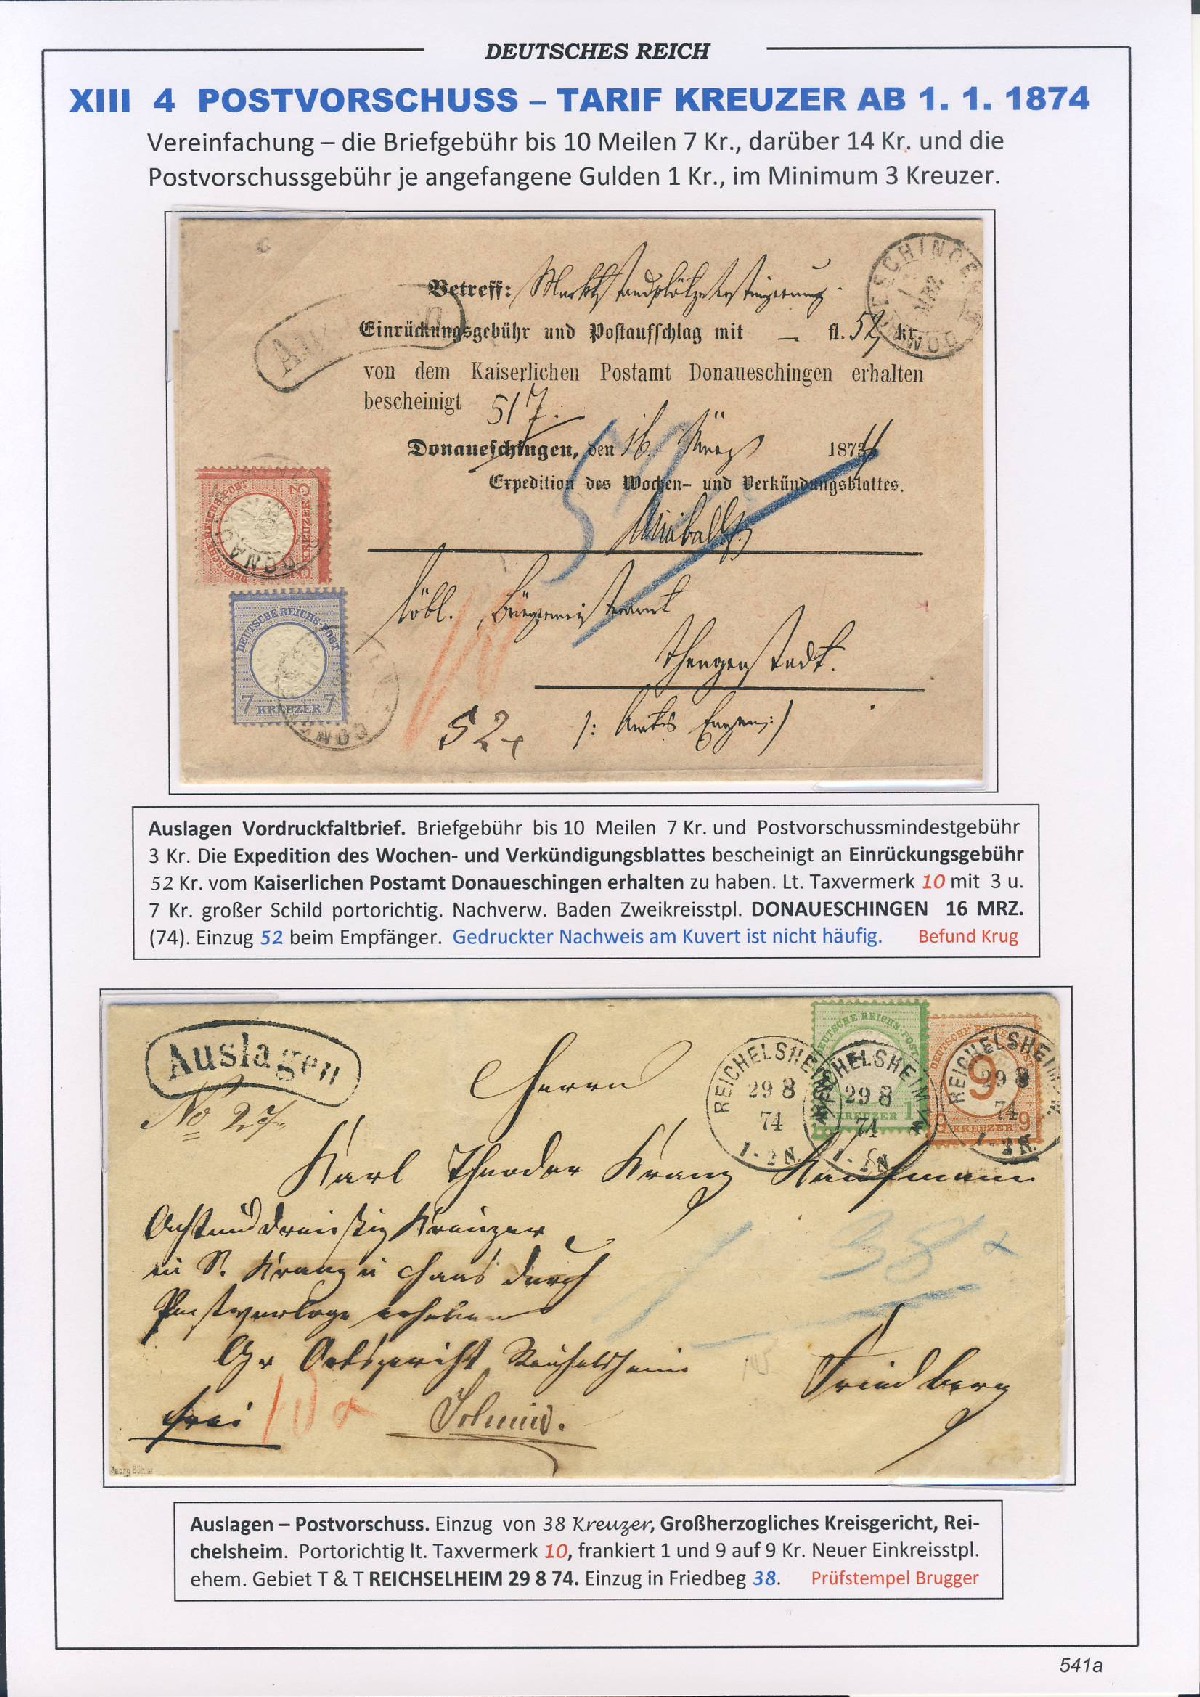 DEUTSCHES REICH
XIII 4 POSTVORSCHUSS – TARIF KREUZER AB 1. 1. 1874
Vereinfachung – die Briefgebühr bis 10 Meilen 7 Kr., darüber 14 Kr. und die
Postvorschussgebühr je angefangene Gulden 1 Kr., im Minimum 3 Kreuzer.
Betreff:
Einrückungsgebühr und Postaufschlag mit — fl. 52 kr.
von dem Kaiserlichen Postamt Donaueschingen erhalten
bescheinigt
517.
Donaueschingen, den 16. März 1874
Expedition des Wochen- und Verkündungsblattes.
52
löbl. Bürgermeisteramt
Thengenstadt.
/: Amts Engen :/
10
52
DEUTSCHE REICHS-POST
7 KREUZER 7
Auslagen Vordruckfaltbrief. Briefgebühr bis 10 Meilen 7 Kr. und Postvorschussmindestgebühr
3 Kr. Die Expedition des Wochen- und Verkündigungsblattes bescheinigt an Einrückungsgebühr
52 Kr. vom Kaiserlichen Postamt Donaueschingen erhalten zu haben. Lt. Taxvermerk 10 mit 3 u.
7 Kr. großer Schild portorichtig. Nachverw. Baden Zweikreisstpl. DONAUESCHINGEN 16 MRZ.
(74). Einzug 52 beim Empfänger. Gedruckter Nachweis am Kuvert ist nicht häufig. Befund Krug
Auslagen
No 27.
Herrn
REICHELSHEIM
29 8
74
1-2N.
REICHELSHEIM
29 8
74
1-2N.
REICHELSHEIM
29 8
74
1-2N.
9
Karl Theodor Kranz Kaufmann
Achtunddreißig Kreuzer
durch
Postvorlage erheben
Gr Ortsgericht Reichelsheim
38
Friedberg
frei
10
Auslagen – Postvorschuss. Einzug von 38 Kreuzer, Großherzogliches Kreisgericht, Rei-
chelsheim. Portorichtig lt. Taxvermerk 10, frankiert 1 und 9 auf 9 Kr. Neuer Einkreisstpl.
ehem. Gebiet T & T REICHSELHEIM 29 8 74. Einzug in Friedbeg 38. Prüfstempel Brugger
541a